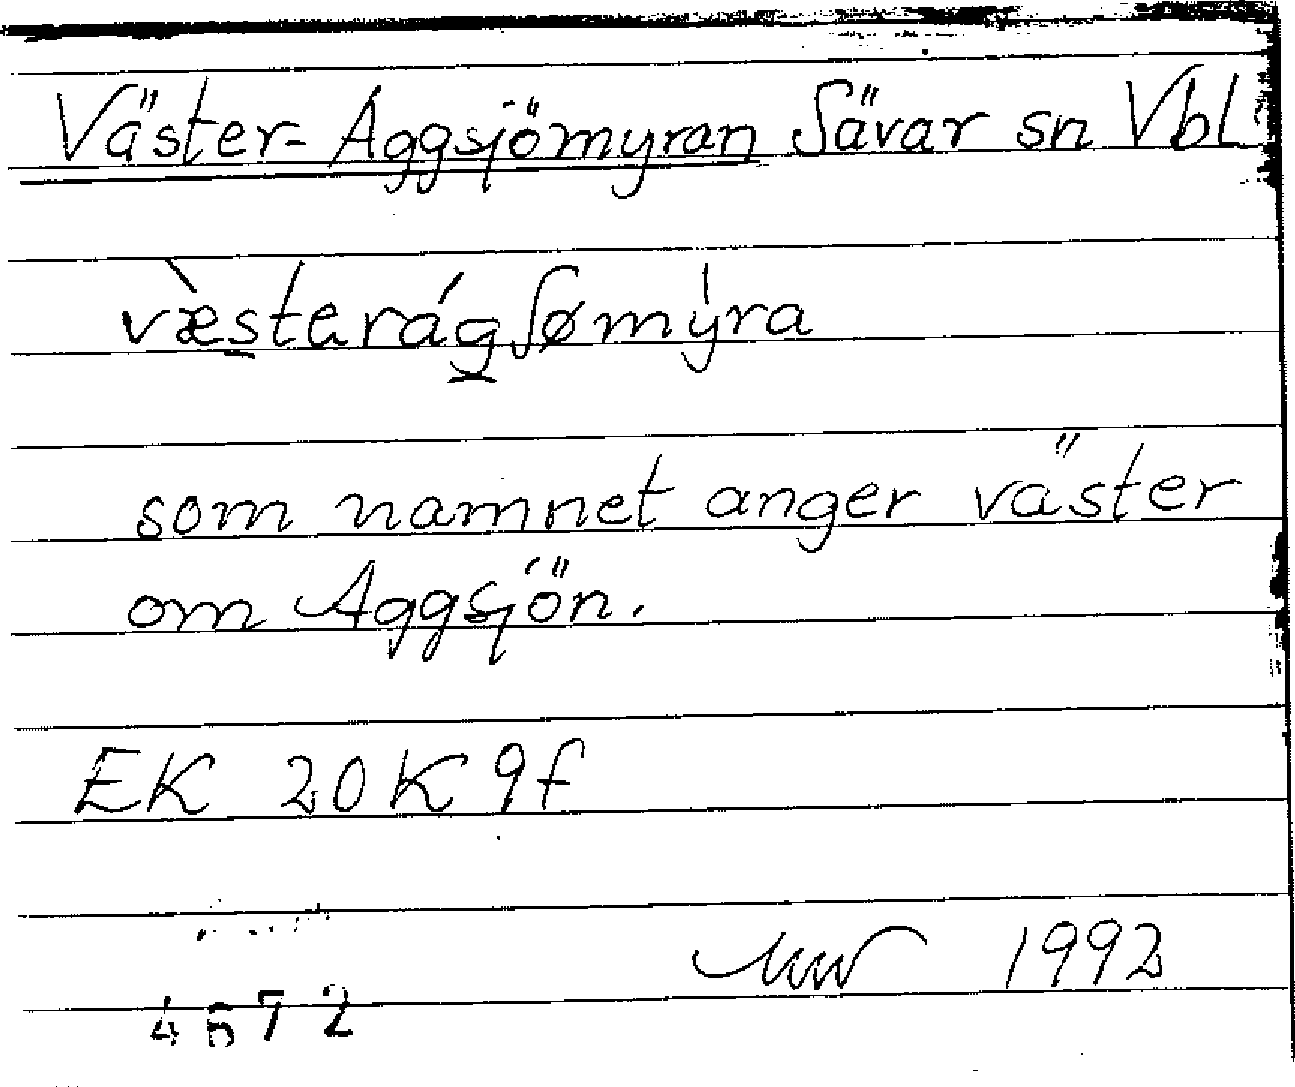 Väster-Aggsjömyran Sävar sn Vbl
væ̀sterágʃømýra
som namnet anger väster
om Aggsjön.
EK 20K 9f
1992
4572